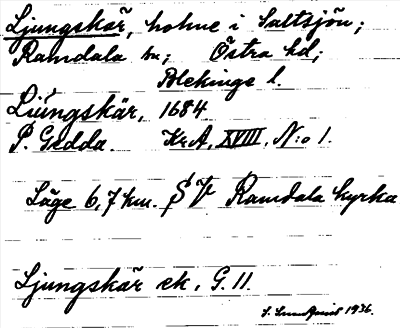 Ljungskär, holme i Saltsjön;
Ramdala sn; Östra hd;
Blekinge l.
Ljúngskär, 1684.
P. Gedda. Kr.A, XVIII, N:o 1.
Läge 6,7 km. S V Ramdala kyrka
Ljungskär ek. G. 11.
1936.